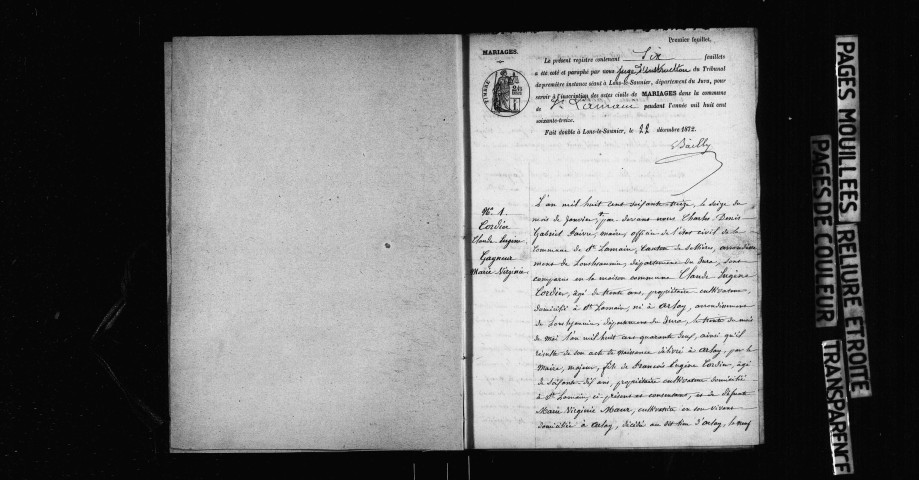 Premier feuillet.
MARIAGES.
Le présent registre contenant Six feuillets
a été coté et paraphé par nous Juge d'instruction du Tribunal
de première instance séant à Lons-le-Saunier, département du Jura, pour
servir à l'inscription des actes civils de MARIAGES dans la commune
de St Lamain pendant l'année mil huit cent
soixante-treize.
Fait double à Lons-le-Saunier, le 22 décembre 1872.
Bailly
TIMBRE
No 1.
Cordier
Claude Eugène
Gagneur
Marie Virginie
L'an mil huit cent soixante treize, le seize du
mois de Janvier, par devant nous Charles Denis
Gabriel Faivre, maire, officier de l'état civil de la
Commune de St Lamain, Canton de Sellières, arrondisse
ment de Lonslesaunier, département du Jura, sont
comparus en la maison commune Claude Eugène
Cordier, âgé de trente ans, propriétaire cultivateur,
domicilié à St Lamain, né à Arlay, arrondissement
de Lonslesaunier, département du Jura, le trente du mois
de Mai l'an mil huit cent quarante deux, ainsi qu'il
résulte de son acte de naissance délivré à Arlay, par le
Maire, majeur, fils de François Eugène Cordier, âgé
de soixante dix ans, propriétaire cultivateur domicilié
à St Lamain, ci présent et consentant, et de défunte
Marie Virginie cultivatrice en son vivant
domiciliée à Arlay, décédée au dit lieu d'Arlay, le neuf
PAGES MOUILLEES RELIURE ETROITE
PAGES DE COULEUR TRANSPARENCE